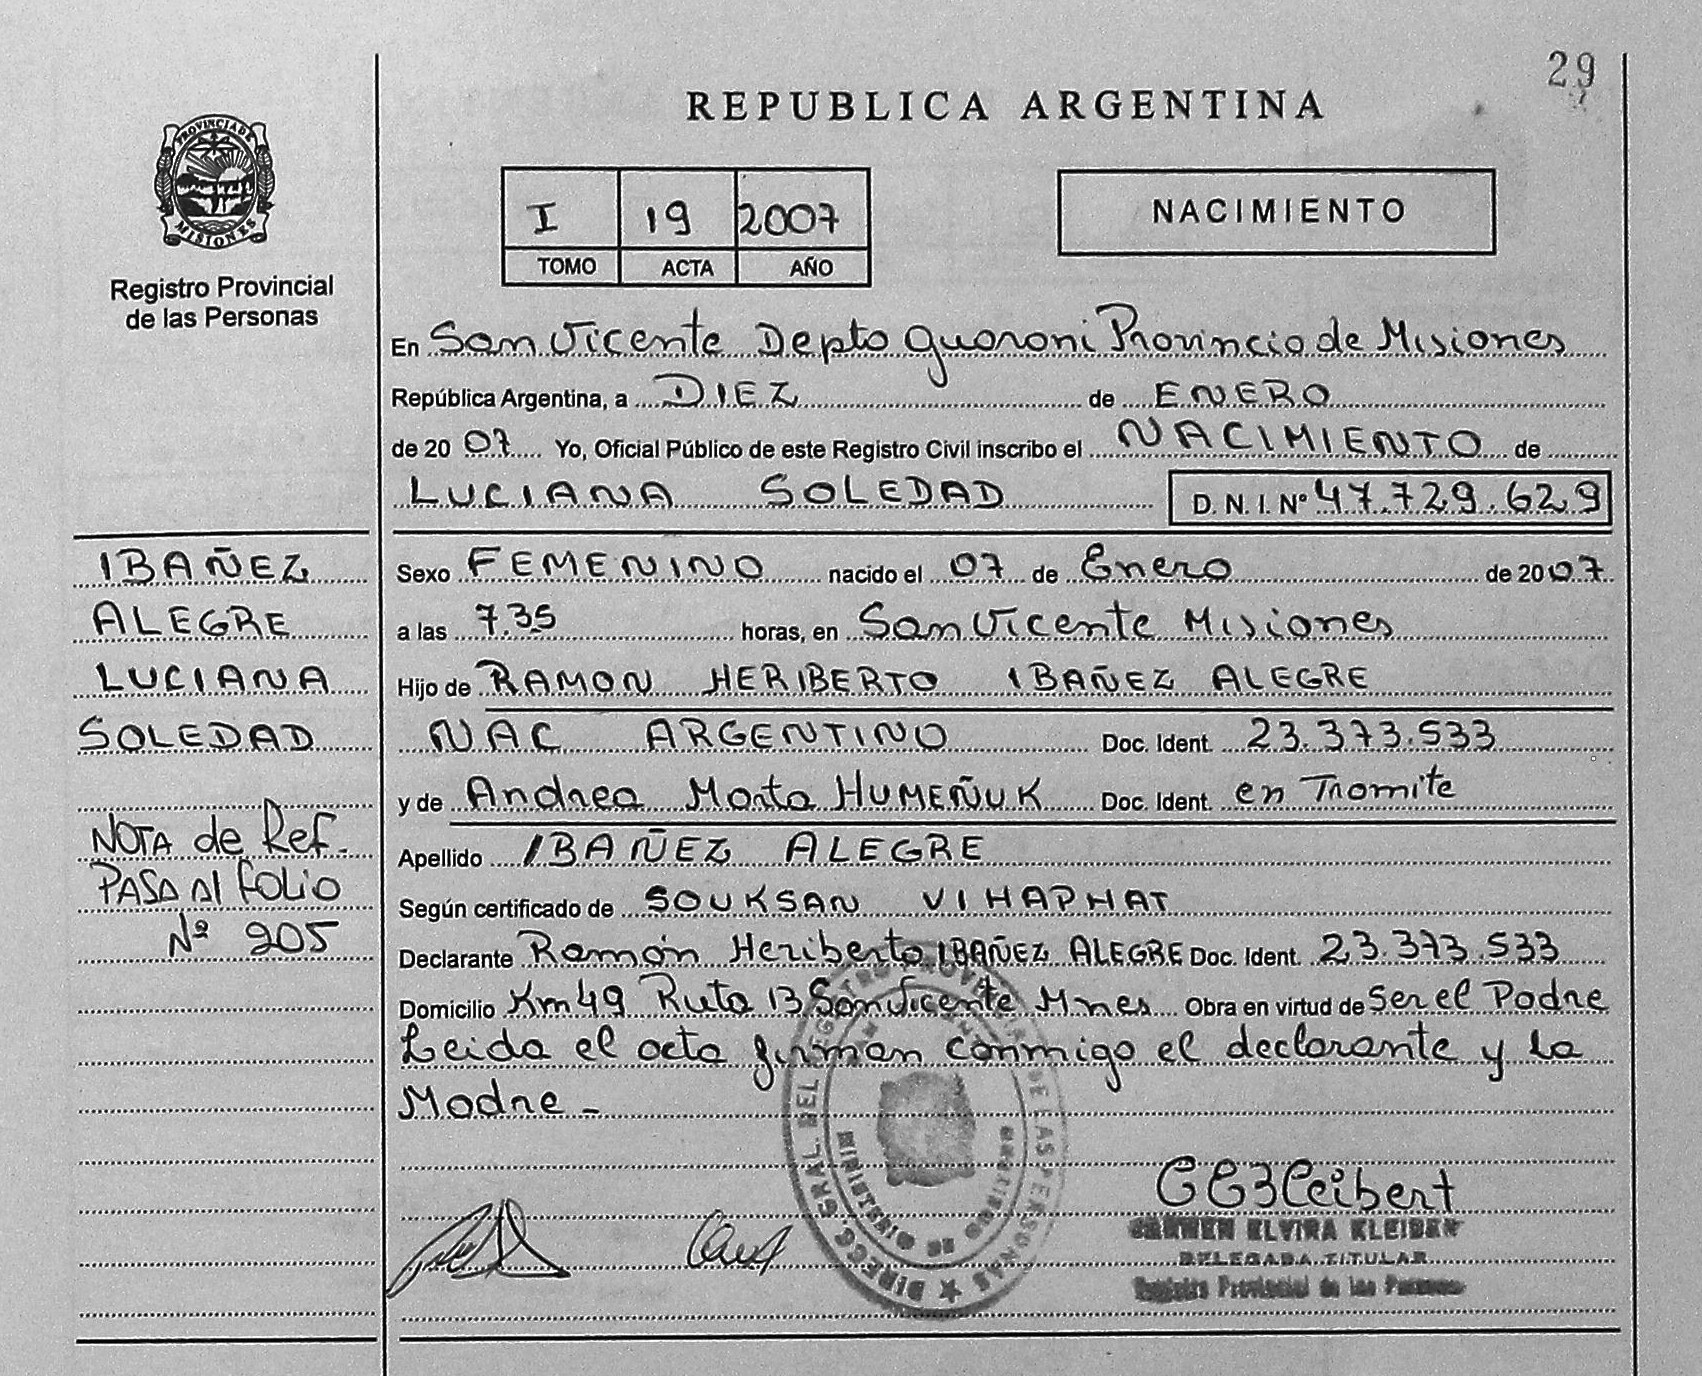 29
REPUBLICA ARGENTINA
PROVINCIA DE
MISIONES
Registro Provincial
de las Personas
I 19 2007
TOMO ACTA AÑO
NACIMIENTO
En San Vicente Depto Guarani Provincia de Misiones
República Argentina, a DIEZ de ENERO
de 2007 Yo, Oficial Público de este Registro Civil inscribo el NACIMIENTO de
LUCIANA SOLEDAD D. N. I. Nº 47.729.629
IBAÑEZ
ALEGRE
LUCIANA
SOLEDAD
NOTA de Ref.
PASA Al FOLIO
Nº 205
Sexo FEMENINO nacido el 07 de Enero de 2007
a las 7.35 horas, en San Vicente Misiones
Hijo de RAMON HERIBERTO IBAÑEZ ALEGRE
NAC ARGENTINO Doc. Ident. 23.373.533
y de Andrea Marta HUMEÑUK Doc. Ident. en Tramite
Apellido IBAÑEZ ALEGRE
Según certificado de SOUKSAN VIHAPHAT
Declarante Ramón Heriberto IBAÑEZ ALEGRE Doc. Ident. 23.373.533
Domicilio Km 49 Ruta 13 San Vicente Mnes Obra en virtud de Ser el Padre
Leida el acta firman conmigo el declarante y la
Madre -
DIRECC. GRAL. DEL REGISTRO PROVINCIAL DE LAS PERSONAS
MINISTERIO DE GOBIERNO
CARMEN ELVIRA KLEIBER
DELEGADA TITULAR
Registro Provincial de las Personas